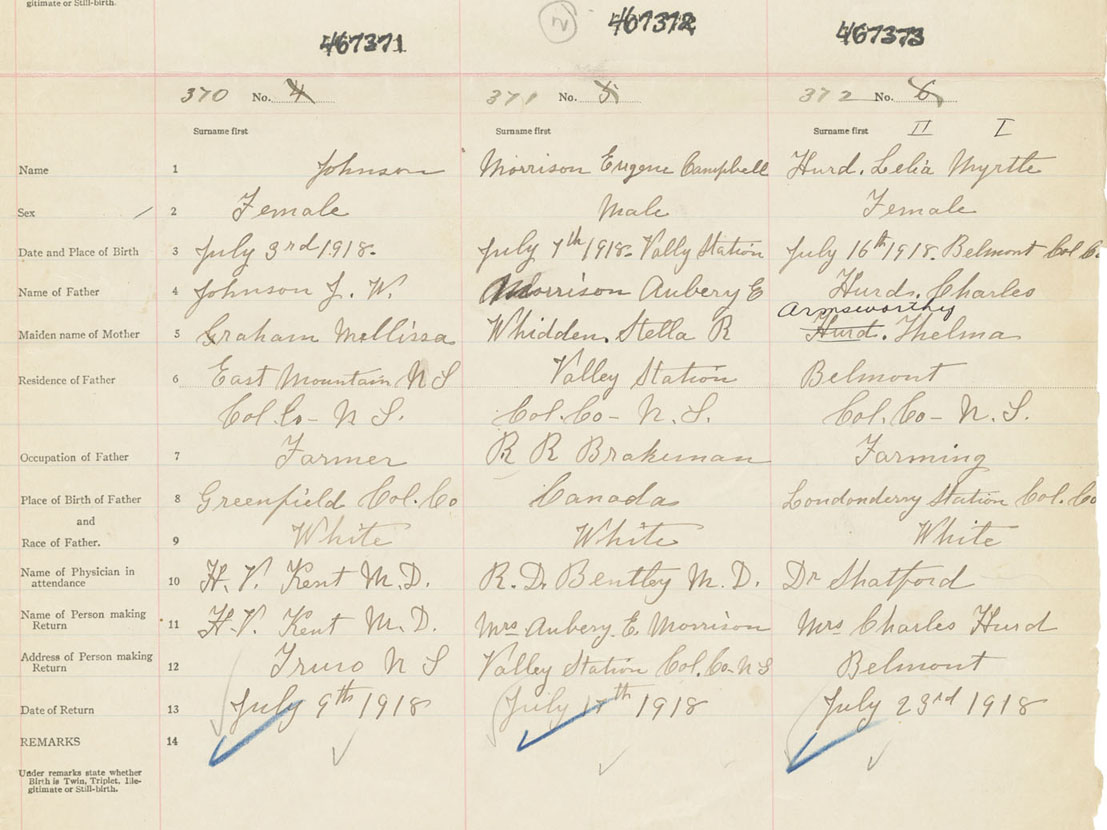 gitimate or Still-birth.
2
467371 467372 467373
370 No. 4 371 No. 5 372 No. 6
Surname first Surname first Surname first II I
Name 1 Johnson Morrison Eugene Campbell Hurd. Lelia Myrtle
Sex 2 Female Male Female
Date and Place of Birth 3 July 3rd 1918. July 7th 1918. Vally Station July 16th 1918. Belmont Col C.
Name of Father 4 Johnson J. W. Morrison Aubery E Hurd. Charles
Armsworthy
Maiden name of Mother 5 Graham Mellissa Whidden. Stella R Hurd. Thelma
Residence of Father 6 East Mountain N S Valley Station Belmont
Col. Co- N S. Col. Co- N. S. Col. Co- N. S.
Occupation of Father 7 Farmer R R Brakeman Farming
Place of Birth of Father 8 Greenfield Col. Co Canada Londonderry Station Col. Co
and
Race of Father. 9 White White White
Name of Physician in
attendance 10 H. V. Kent M. D. R. D. Bentley M. D. Dr Shatford
Name of Person making
Return 11 H. V. Kent M. D. Mrs Aubery. E. Morrison Mrs Charles Hurd
Address of Person making
Return 12 Truro N S Valley Station Col. Co. N S Belmont
Date of Return 13 July 9th 1918 July 1918 July 23rd 1918
REMARKS 14
Under remarks state whether
Birth is Twin, Triplet, Ille-
gitimate or Still-birth.